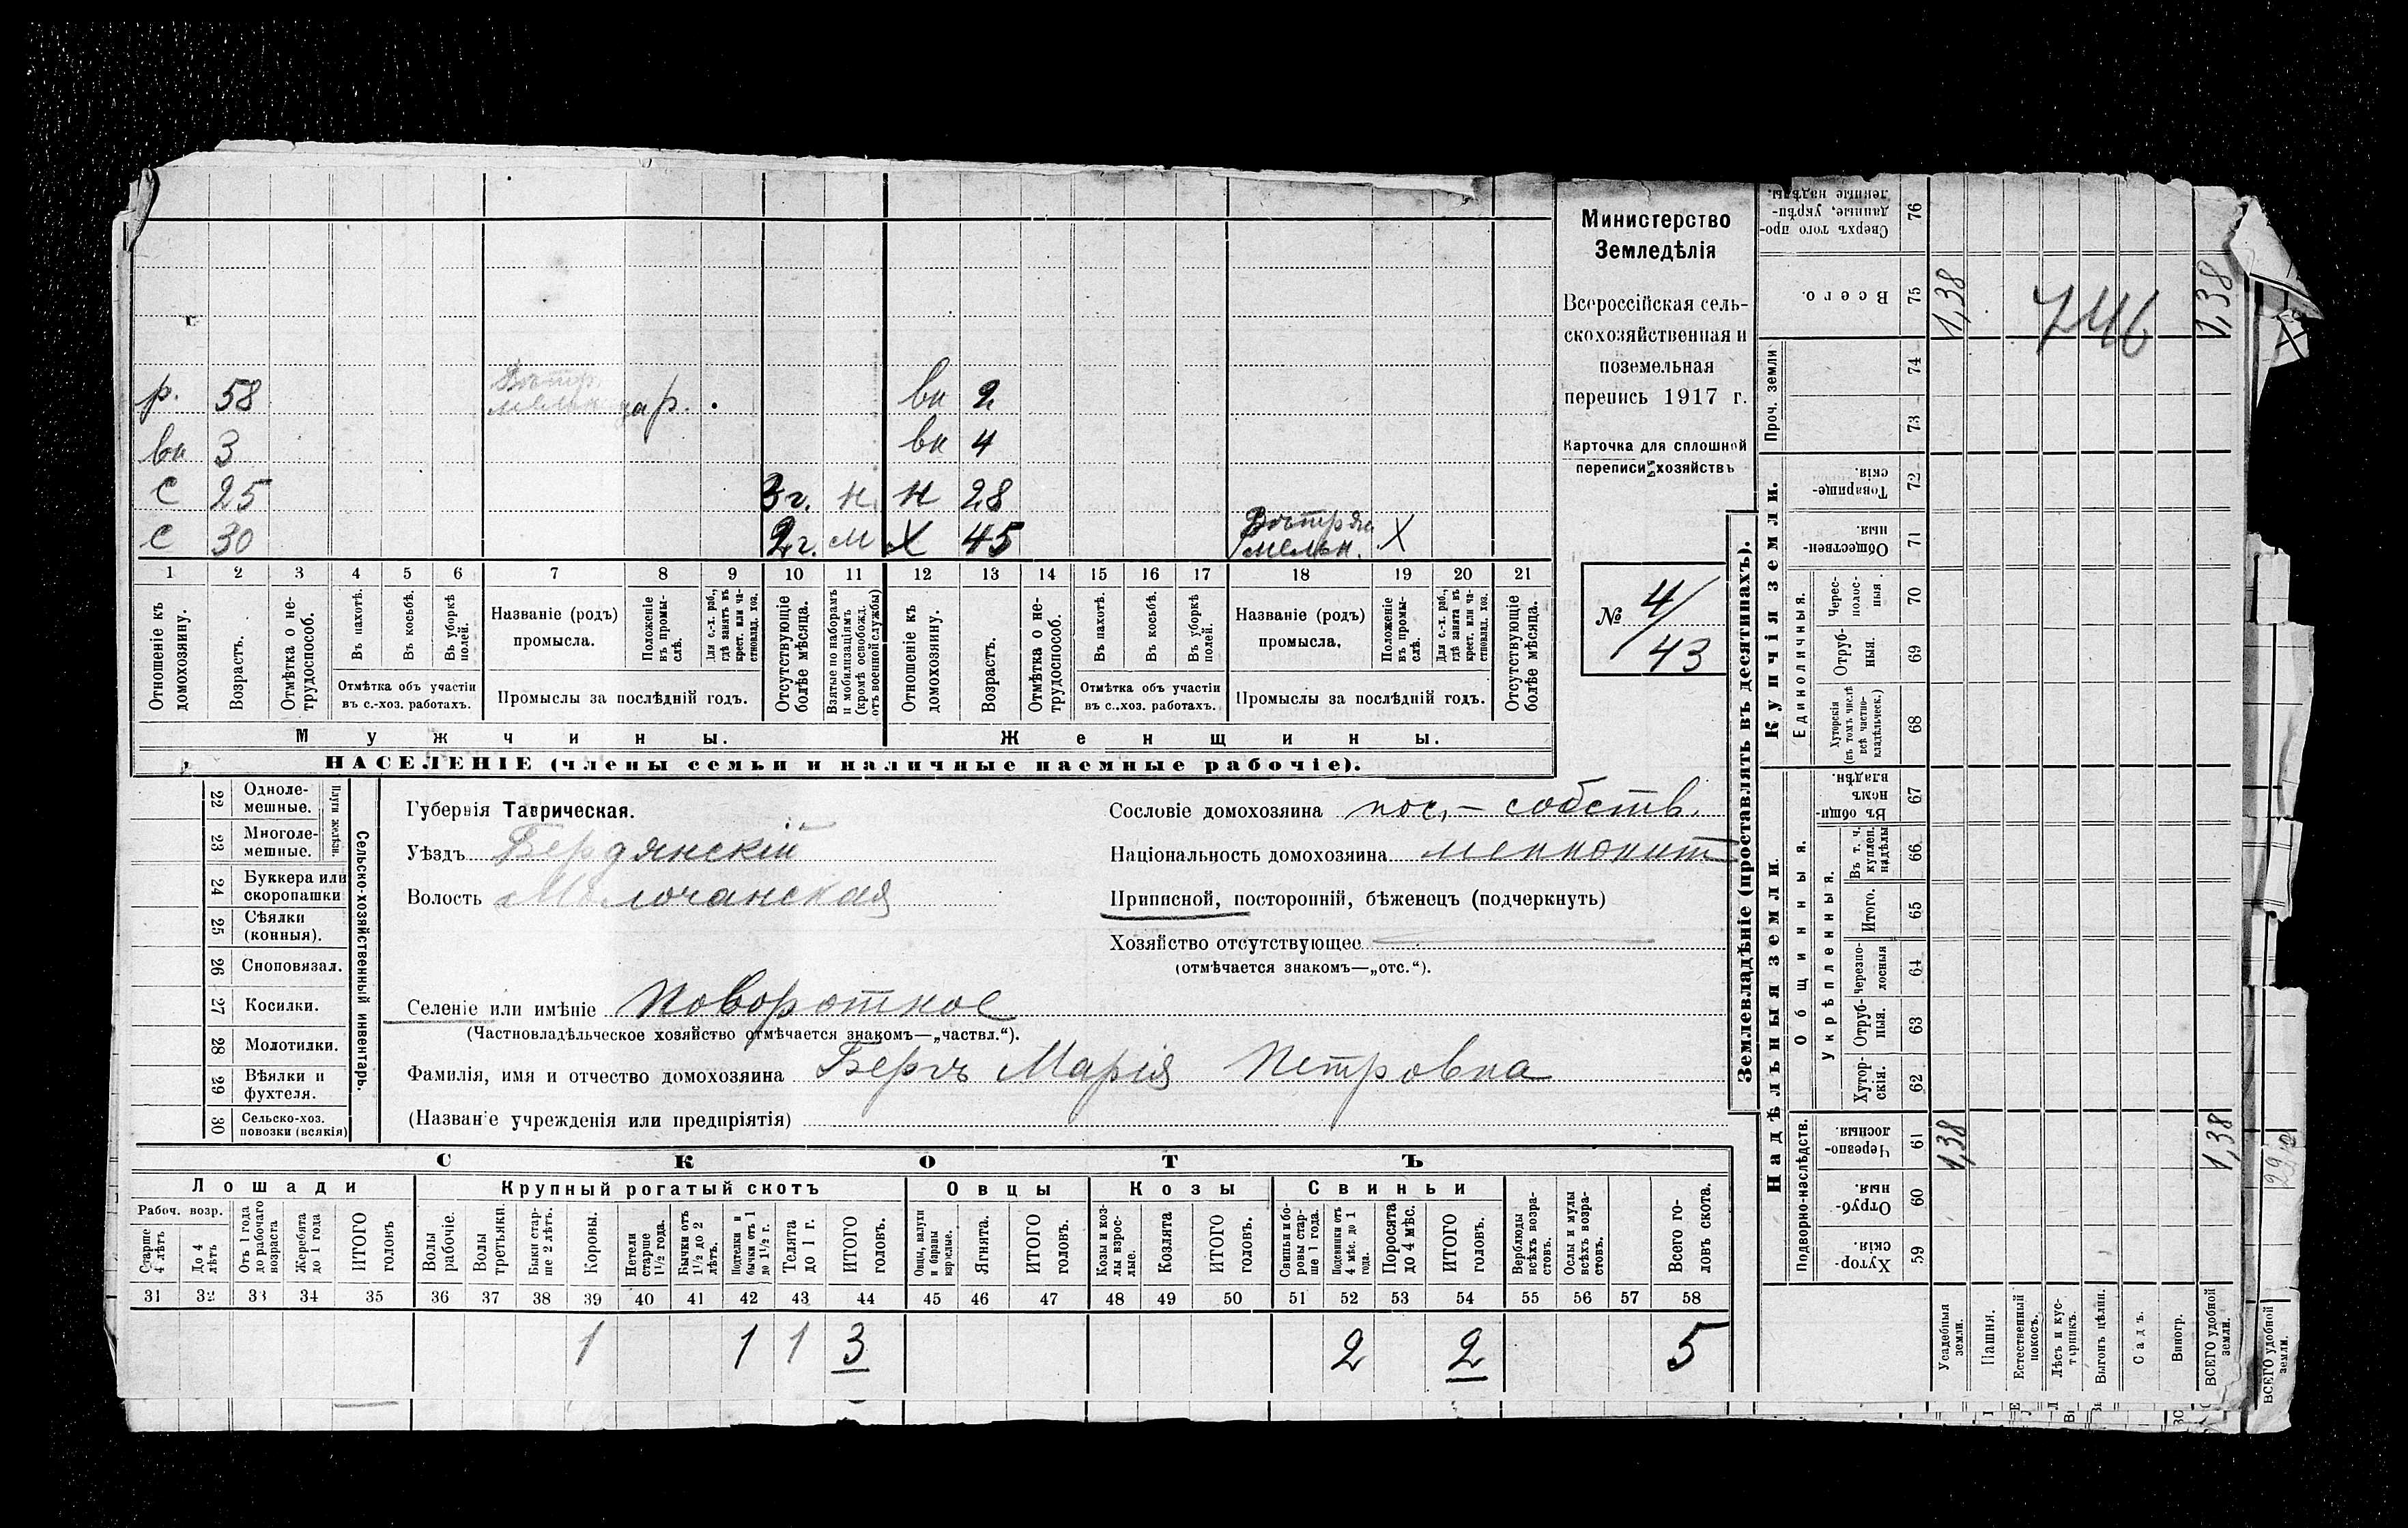 Министерство
Земледѣлія
Всероссійская сель-
скохозяйственная и
поземельная
перепись 1917 г.
Карточка для сплошной
переписи хозяйствъ
№ 4/
43
р. 58 Вѣтр. мельн. ар. вн 2
вн 3 вн 4
с 25 3 г. н н 28
с 30 2 г. м х 45 Вѣтрян мельн. Х
1 2 3 4 5 6 7 8 9 10 11 12 13 14 15 16 17 18 19 20 21
Отношеніе къ домохозяину.
Возрастъ.
Отмѣтка о не-трудоспособ.
Въ пахотѣ.
Въ косьбѣ.
Въ уборкѣ полей.
Отмѣтка объ участіи въ с.-хоз. работахъ.
Названіе (родъ) промысла.
Положеніе въ промы-слѣ.
Для с.-х. раб., гдѣ занятъ въ крест. или ча-стновлад. хоз.
Промыслы за послѣдній годъ.
Отсутствующіе болѣе мѣсяца.
Взятые по наборамъ и мобилизаціямъ (кромѣ освобожд. отъ военной службы)
Отношеніе къ домохозяину.
Возрастъ.
Отмѣтка о не-трудоспособ.
Въ пахотѣ.
Въ косьбѣ.
Въ уборкѣ полей.
Отмѣтка объ участіи въ с.-хоз. работахъ.
Названіе (родъ) промысла.
Положеніе въ промы-слѣ
Для с.-х. раб., гдѣ занятъ въ крест. или ча-стновлад. хоз.
Промыслы за послѣдній годъ.
Отсутствующіе болѣе мѣсяца.
Мужчины. Женщины.
НАСЕЛЕНІЕ (члены семьи и наличные наемные рабочіе).
22 Одноле-мешные.
23 Многоле-мешные.
Плуги желѣзн.
24 Буккера или скоропашки
25 Сѣялки (конныя).
26 Сноповязал.
27 Косилки.
28 Молотилки.
29 Вѣялки и фухтеля.
30 Сельско-хоз. повозки (всякія)
Сельско-хозяйственный инвентарь.
Губернія Таврическая.
Уѣздъ Бердянскій
Волость Молочанская
Селеніе или имѣніе Поворотное
(Частновладѣльческое хозяйство отмѣчается знакомъ—„частвл.“).
Фамилія, имя и отчество домохозяина Бергъ Марія Петровна
(Названіе учрежденія или предпріятія)
Сословіе домохозяина пос.-собств.
Національность домохозяина меннонит
Приписной, посторонній, бѣженецъ (подчеркнуть)
Хозяйство отсутствующее —
(отмѣчается знакомъ—„отс.“).
СКОТЪ
Лошади Крупный рогатый скотъ Овцы Козы Свиньи
Рабоч. возр.
Старше 4 лѣтъ
До 4 лѣтъ
Отъ 1 года до рабочаго возраста
Жеребята до 1 года
ИТОГО головъ
Волы рабочіе.
Волы третьяки.
Быки стар-ше 2 лѣтъ.
Коровы.
Нетели старше 1½ года.
Бычки отъ 1½ до 2 лѣтъ.
Подтелки и бычки отъ 1 до 1½ г.
Телята до 1 г.
ИТОГО головъ.
Овцы, валухи и бараны взрослые.
Ягнята.
ИТОГО головъ.
Козы и коз-лы взрос-лые.
Козлята
ИТОГО головъ.
Свиньи и бо-ровы стар-ше 1 года.
Подсвинки отъ 4 мѣс. до 1 года.
Поросята до 4 мѣс.
ИТОГО головъ.
Верблюды всѣхъ возра-стовъ.
Ослы и мулы всѣхъ возра-стовъ.
Всего го-ловъ скота.
31 32 33 34 35 36 37 38 39 40 41 42 43 44 45 46 47 48 49 50 51 52 53 54 55 56 57 58
1 1 1 3 2 2 5
Землевладѣніе (проставлять въ десятинахъ).
Купчія земли.
Надѣльныя земли.
Сверхъ того про-данные, укрѣп-ленные надѣлы. 76
Всего. 75 1,38 1,38
746
Проч. земли 74 73
Товарище-скія. 72
Обществен-ныя. 71
Единоличныя.
Черес-полос-ныя. 70
Отруб-ныя. 69
Хуторскія (въ томъ числѣ всѣ частно-владѣльческ.) 68
Общинныя.
Въ общин-номъ владѣн. 67
Укрѣпленныя.
Въ т. ч. куплен. надѣлы 66
Итого. 65
Черезпо-лосныя 64
Отруб-ныя. 63
Хутор-скія. 62
Подворно-наслѣдств.
Черезпо-лосныя. 61 1,38 1,38
Отруб-ныя. 60
Хутор-скія. 59
Усадебныя земли.
Пашня.
Естественный покосъ.
Лѣсъ и кус-тарникъ.
Выгонъ цѣлин.
Садъ.
Виногр.
ВСЕГО удобной земли.
ВСЕГО удобной земли.